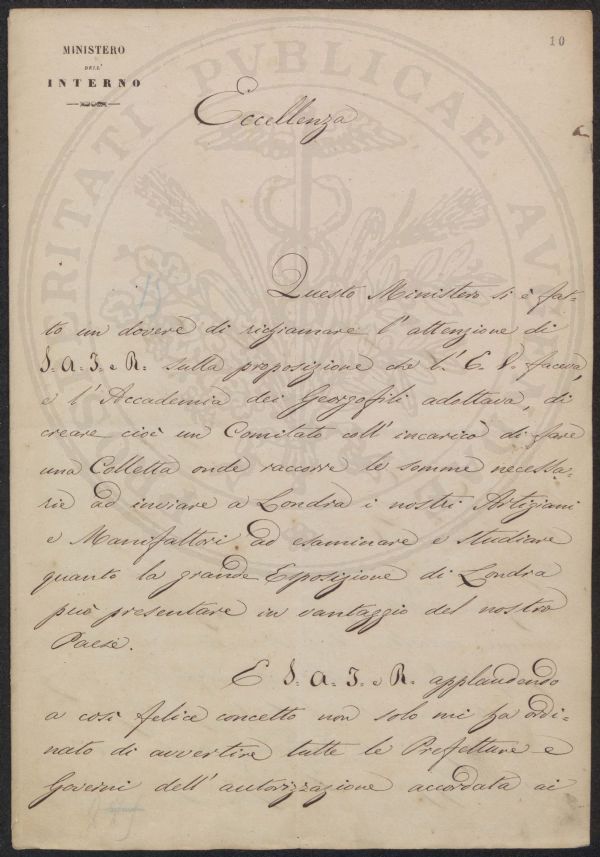 10
MINISTERO
DELL'
INTERNO
Eccellenza
Questo Ministero si è fat-
to un dovere di richiamare l'attenzione di
S. A. I. e R. sulla proposizione che l'E. V. faceva,
e l'Accademia dei Georgofili adottava, di
creare cioè un Comitato coll'incarico di fare
una Colletta onde raccorre le somme necessa-
rie ad inviare a Londra i nostri Artigiani
e Manifattori ad esaminare e studiare
quanto la grande Esposizione di Londra
può presentare in vantaggio del nostro
Paese.
E S. A. I. e R. applaudendo
a così felice concetto non solo mi ha ordi-
nato di avvertire tutte le Prefetture e
Governi dell'autorizzazione accordata ai